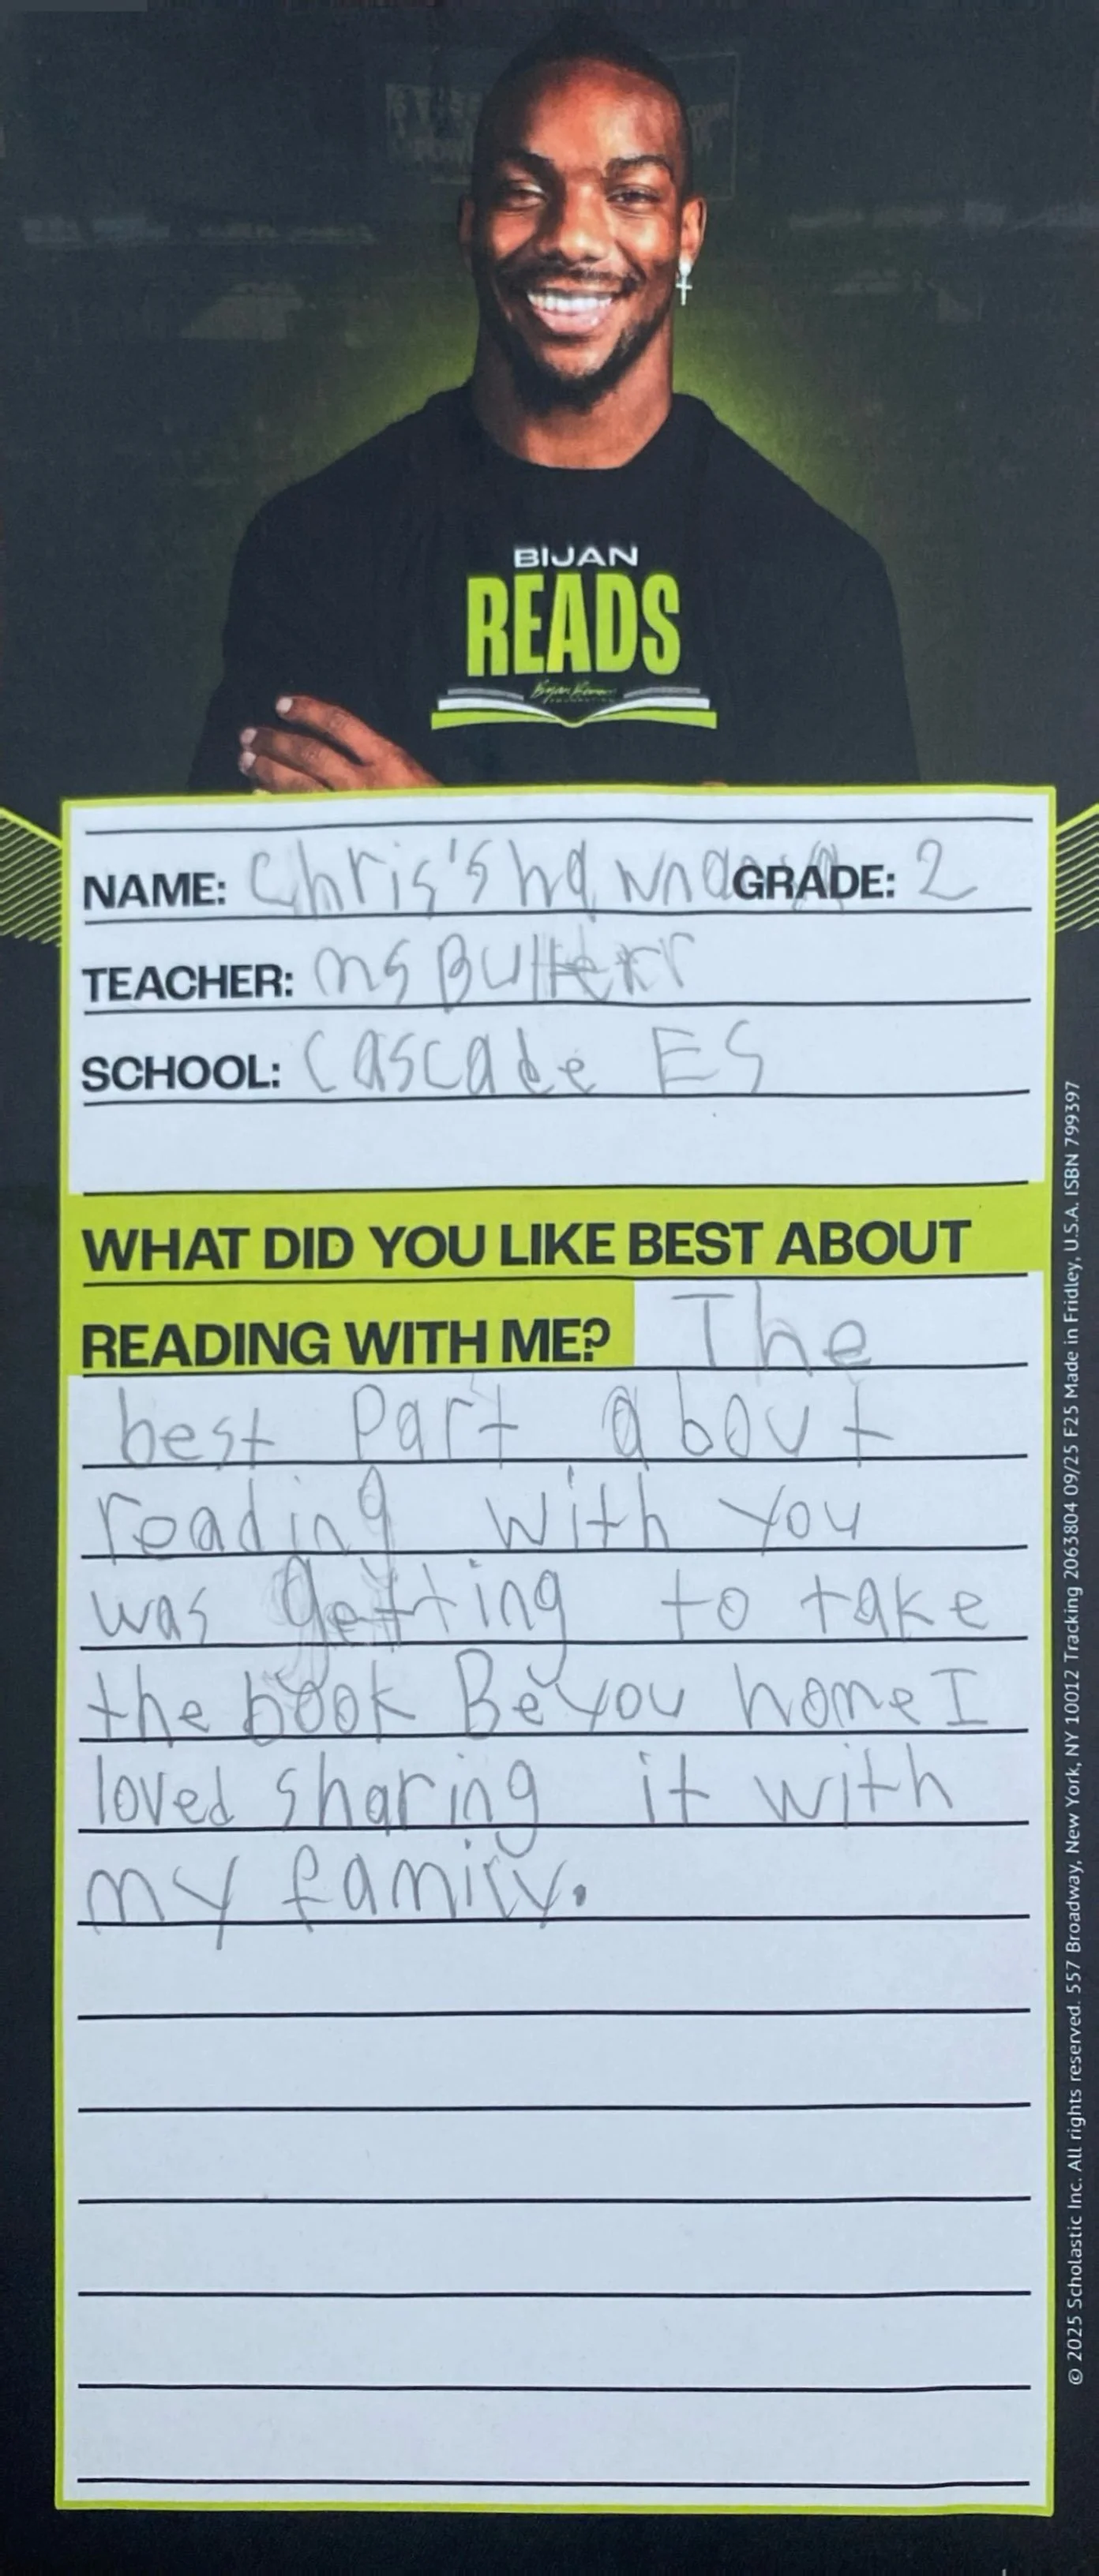 BIJAN
READS
NAME: Chris'sha wnd GRADE: 2
TEACHER: ms
SCHOOL: Cascade ES
WHAT DID YOU LIKE BEST ABOUT
READING WITH ME? The
best Part about
reading with you
was getting to take
the book Be you home I
loved sharing it with
my family.
© 2025 Scholastic Inc. All rights reserved. 557 Broadway, New York, NY 10012 Tracking 2063804 09/25 F25 Made in Fridley, U.S.A. ISBN 799397